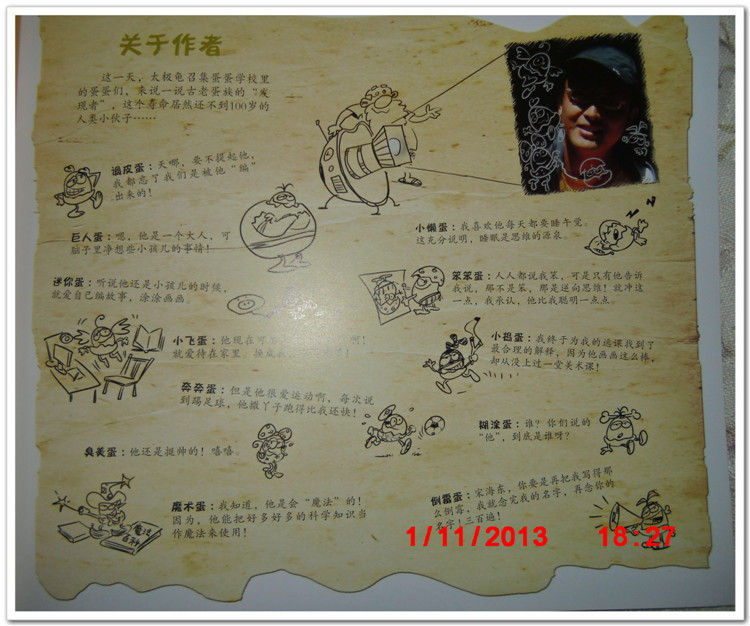 关于作者
这一天，太极龟召集蛋蛋学校里
的蛋蛋们，来说一说古老蛋族的“发
现者”，这个寿命居然还不到100岁的
人类小伙子……
调皮蛋：天哪，要不提起他，
我都忘了我们是被他“编”
出来的！
巨人蛋：嗯，他是一个大人，可
脑子里净想些小孩儿的事情！
小懒蛋：我喜欢他每天都要睡午觉。
这充分说明，睡眠是思维的源泉。
迷你蛋：听说他还是小孩儿的时候，
就爱自己编故事，涂涂画画。
笨笨蛋：人人都说我笨，可是只有他告诉
我说，那不是笨，那是逆向思维！就冲这
一点，我承认，他比我聪明一点点。
小飞蛋：他现在可
就爱待在家里
小捣蛋：我终于为我的逃课找到了
最合理的解释，因为他画画这么棒，
却从没上过一堂美术课！
奔奔蛋：但是他很爱运动啊，每次说
到踢足球，他撒丫子跑得比我还快！
糊涂蛋：谁？你们说的
“他”，到底是谁呀？
臭美蛋：他还是挺帅的！嘻嘻。
魔术蛋：我知道，他是会“魔法”的！
因为，他能把好多好多的科学知识当
作魔法来使用！
魔法
百科
倒霉蛋：宋海东，你要是再把我写得那
么倒霉，我就念完我的名字，再念你的
名字！三百遍！
1/11/2013 18:27